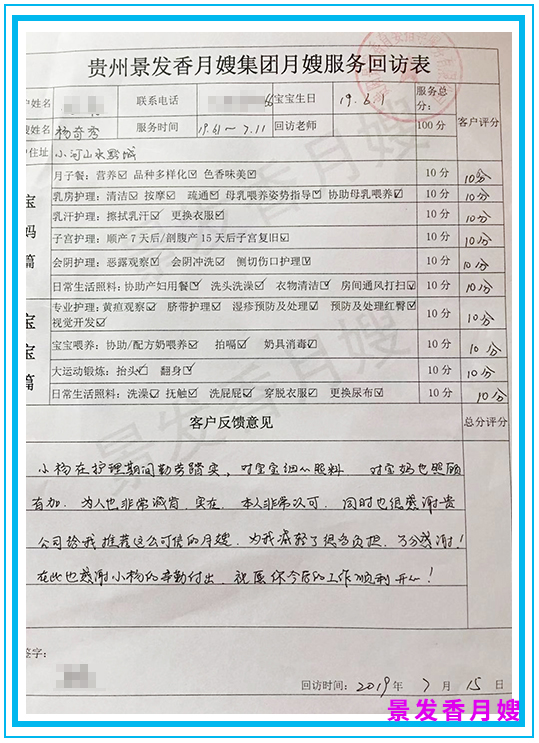 贵州景发香月嫂集团月嫂服务回访表
户姓名 联系电话 宝宝生日 19.6.1 服务总分: 客户评分
嫂姓名 杨奇秀 服务时间 19.6.1~7.11 回访老师 100分
户住址 小河山水黔城
宝妈篇
月子餐:营养☑ 品种多样化☑ 色香味美☑ 10分 10分
乳房护理:清洁☑ 按摩☑ 疏通☑ 母乳喂养姿势指导☑ 协助母乳喂养☑ 10分 10分
乳汗护理:擦拭乳汗☑ 更换衣服☑ 10分 10分
子宫护理:顺产7天后/剖腹产15天后子宫复旧☑ 10分 10分
会阴护理:恶露观察☑ 会阴冲洗☑ 侧切伤口护理☑ 10分 10分
日常生活照料:协助产妇用餐☑ 洗头洗澡☑ 衣物清洁☑ 房间通风打扫☑ 10分 10分
宝宝篇
专业护理:黄疸观察☑ 脐带护理☑ 湿疹预防及处理☑ 预防及处理红臀☑
视觉开发☑ 10分 10分
宝宝喂养:协助/配方奶喂养☑ 拍嗝☑ 奶具消毒☑ 10分 10分
大运动锻炼:抬头☑ 翻身☑ 10分 10分
日常生活照料:洗澡☑ 抚触☑ 洗屁屁☑ 穿脱衣服☑ 更换尿布☑ 10分 10分
客户反馈意见 总分评分
小杨在护理期间勤劳踏实,对宝宝细心照料 对宝妈也照顾
有加.为人也非常诚肯.实在.本人非常认可.同时也很感谢贵
公司给我推荐这么可信的月嫂.为我减轻了很多负担.万分感谢!
在此也感谢小杨的辛勤付出.祝愿你今后的工作顺利开心!
签字:
回访时间:2019年 7月 15日
景发香月嫂
景发香月嫂
景发香月嫂